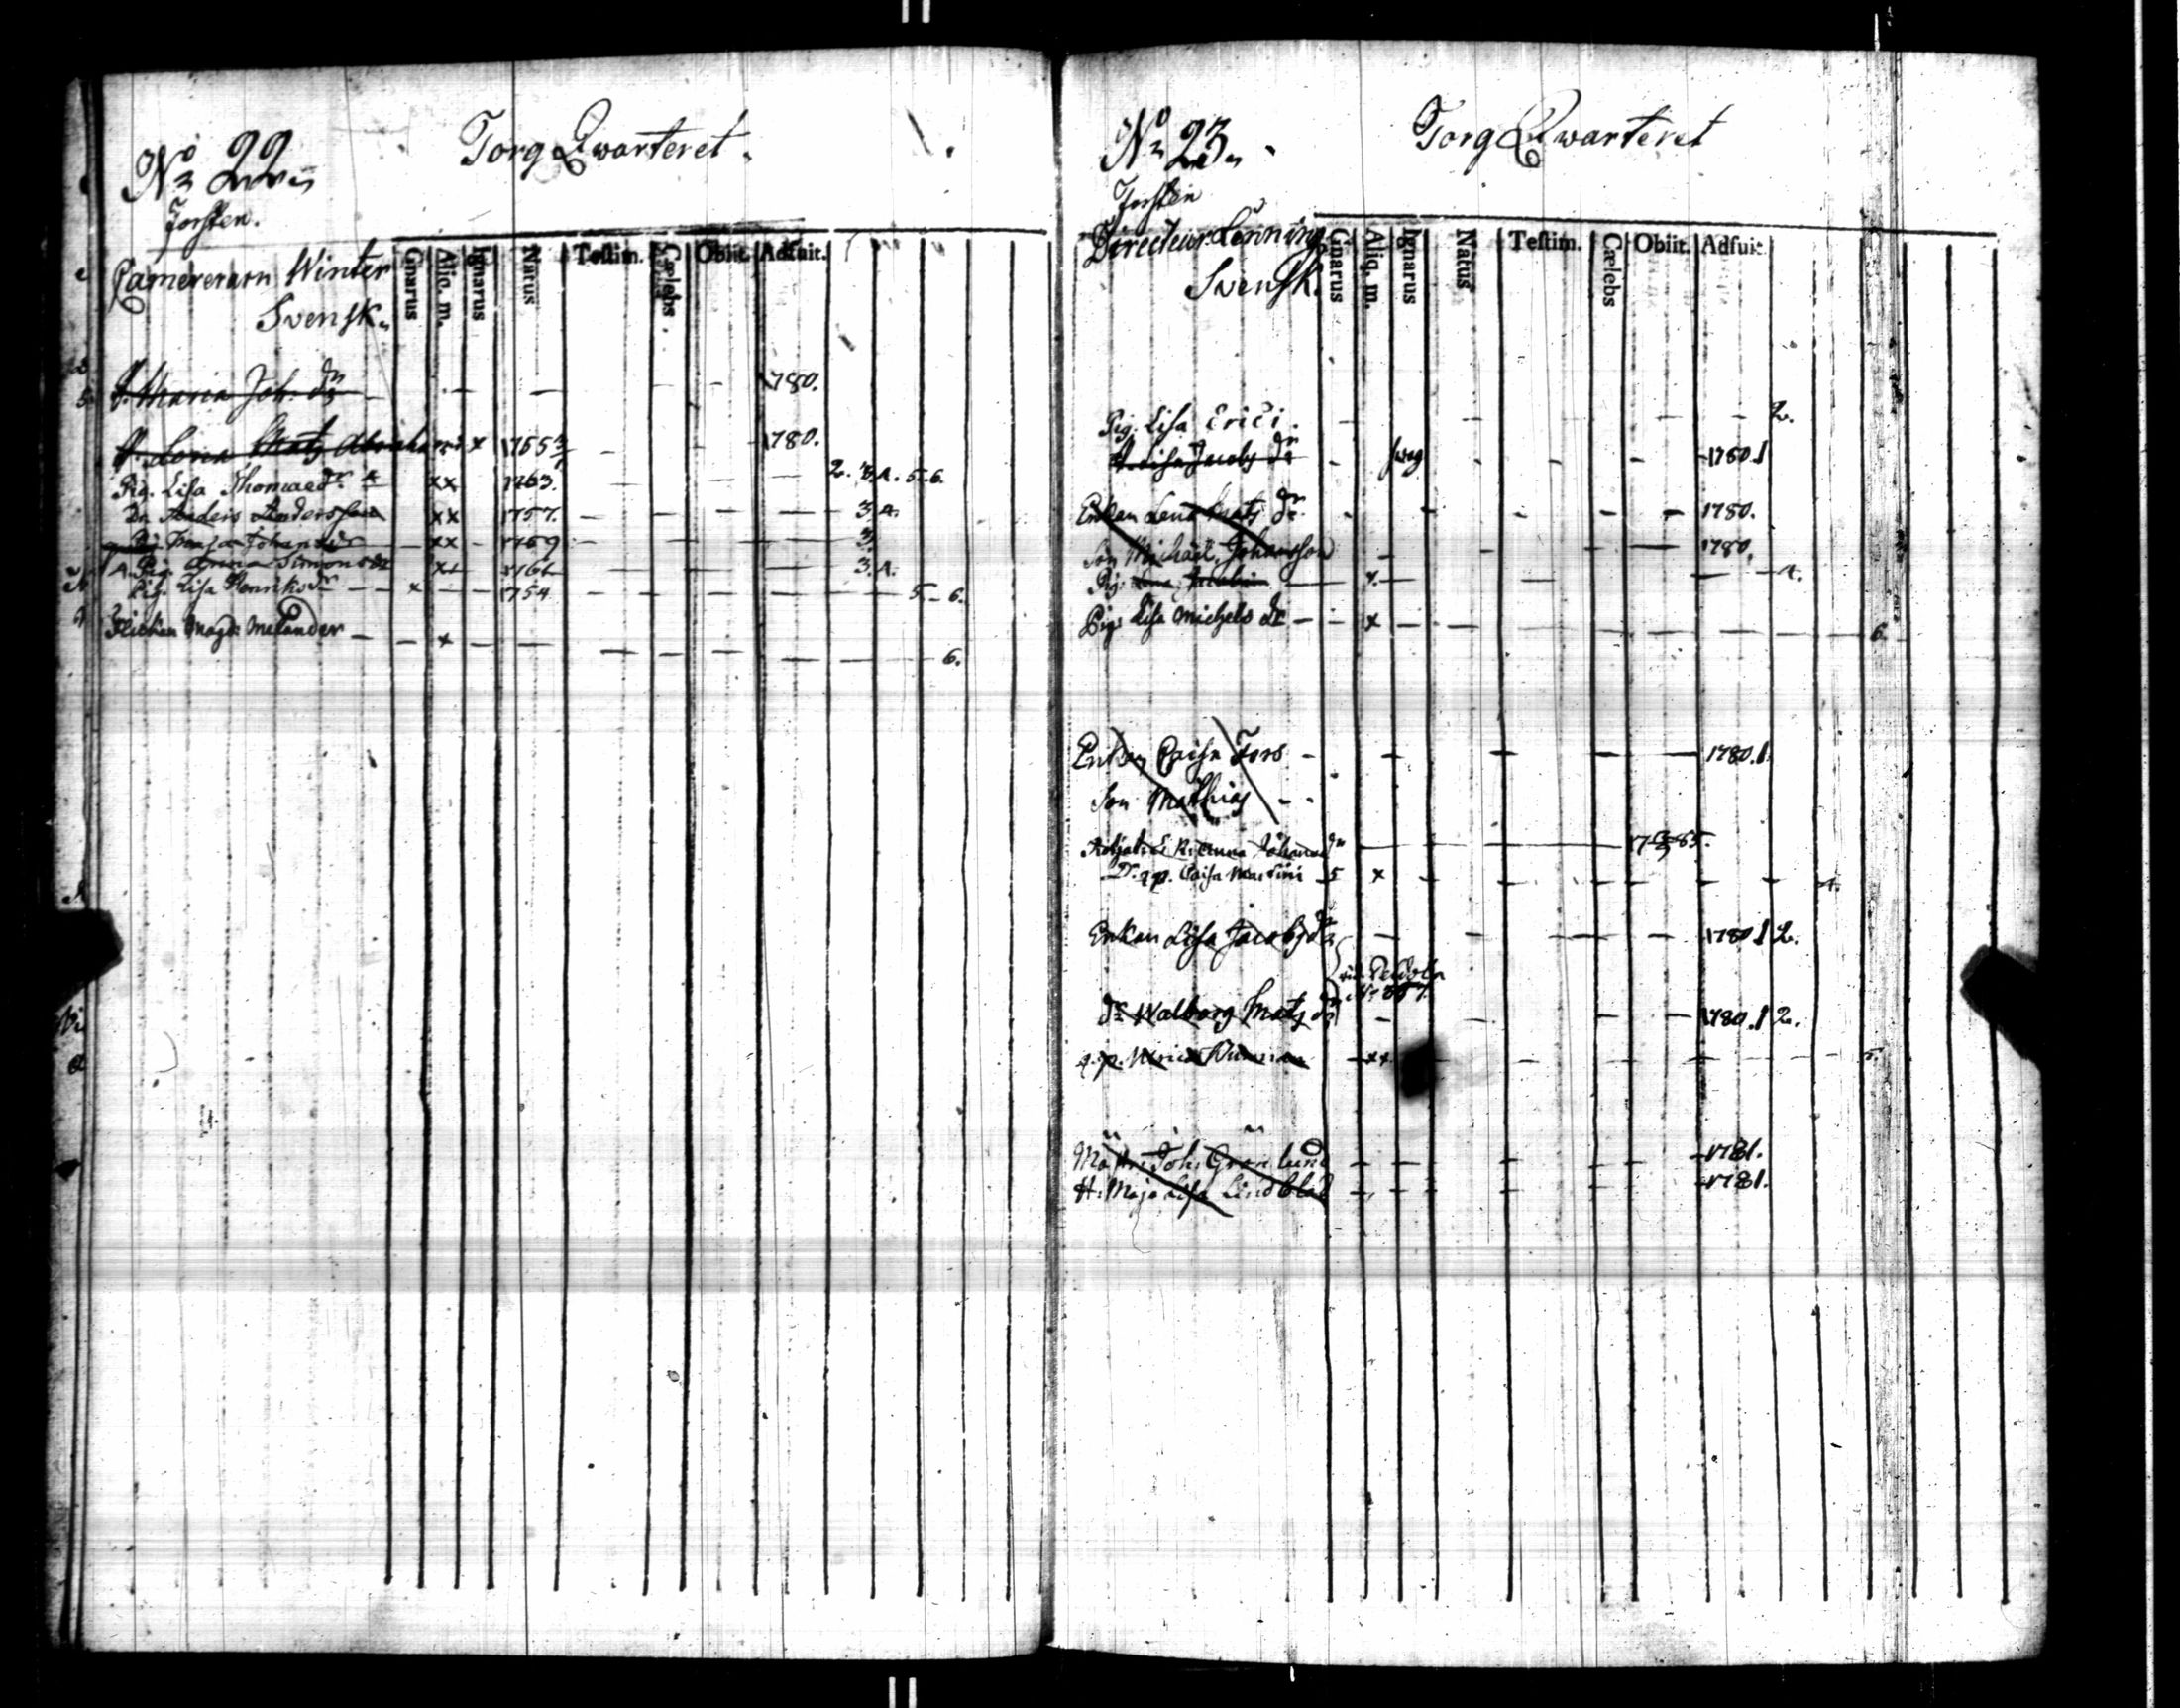 No 22
Torg Qwarteret.
Forsten.
Camererarn Winter
Svensk.
Gnarus Aliq. m. Ignarus Natus Testim. Cælebs Obiit. Adfuit.
H. Maria Joh. dr 1780.
Matz 1755 1780.
Pig. Lisa Thomaedr xx 1763. 2. 3. 4. 5. 6.
Dr. Anders Andersson xx 1757. 3. 4.
xx 1769 3.
Pig. Anna Simonsdr 3. 4.
Pig. Lisa Henriksdr x 1754 5 - 6.
Flickan Magd: Melander x 6.
No 23
Torg Qwarteret
Forsten
Directeur Lönning
Svensk.
Gnarus Aliq. m. Ignarus Natus Testim. Cælebs Obiit. Adfuit.
Pig. Lisa Erici. 2.
Lisa Jacobs dr svag 1780.
Enkan Lena Matz dr 1780.
Son Michael Johansson 1780.
Pig. x 4.
Pig. Lisa Michels dr x 6.
Enkan Caisa Fors 1780.
Son Mathias
Anna Johansdr 85.
Caisa Martini 5 x 4.
Enkan Lisa Jacobs dr 1780. 2.
dr Walborg Matz dr 1780. 2.
q.p. xx 5.
Joh: Grönlund 1781.
H: Maja Lisa Lindblad 1781.